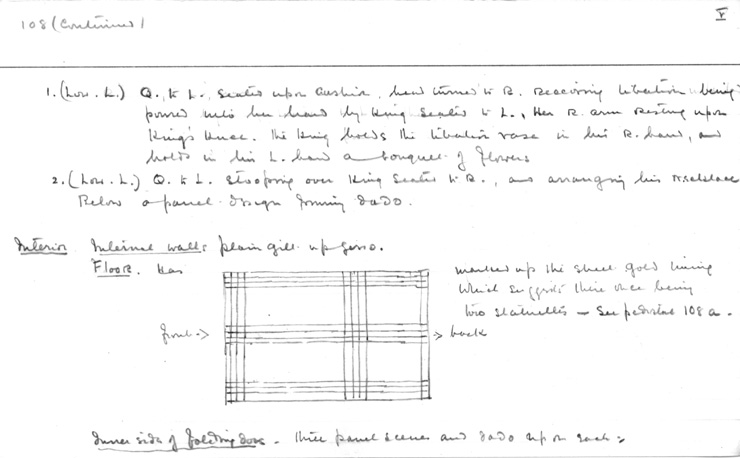 108 (Continued)
V
1. (Low. L.) Q. to L. seated upon cushion, head turned to R. receiving libation being
poured into her hand by King seated to L., Her R. arm resting upon
King's knee. The King holds the libation vase in his R. hand, and
holds in his L. hand a bouquet of flowers
2. (Low. L.) Q. to L. stooping over King seated to R., and arranging his necklace
Below a panel design forming dado.
Interior Internal walls plain gilt up gesso.
Floor. Has
marked up the sheet gold lining
which suggests there once being
two statuettes — See pedestal 108 a.
front →
→ back
Inner side of folding doors - three panel scenes and dado upon each :